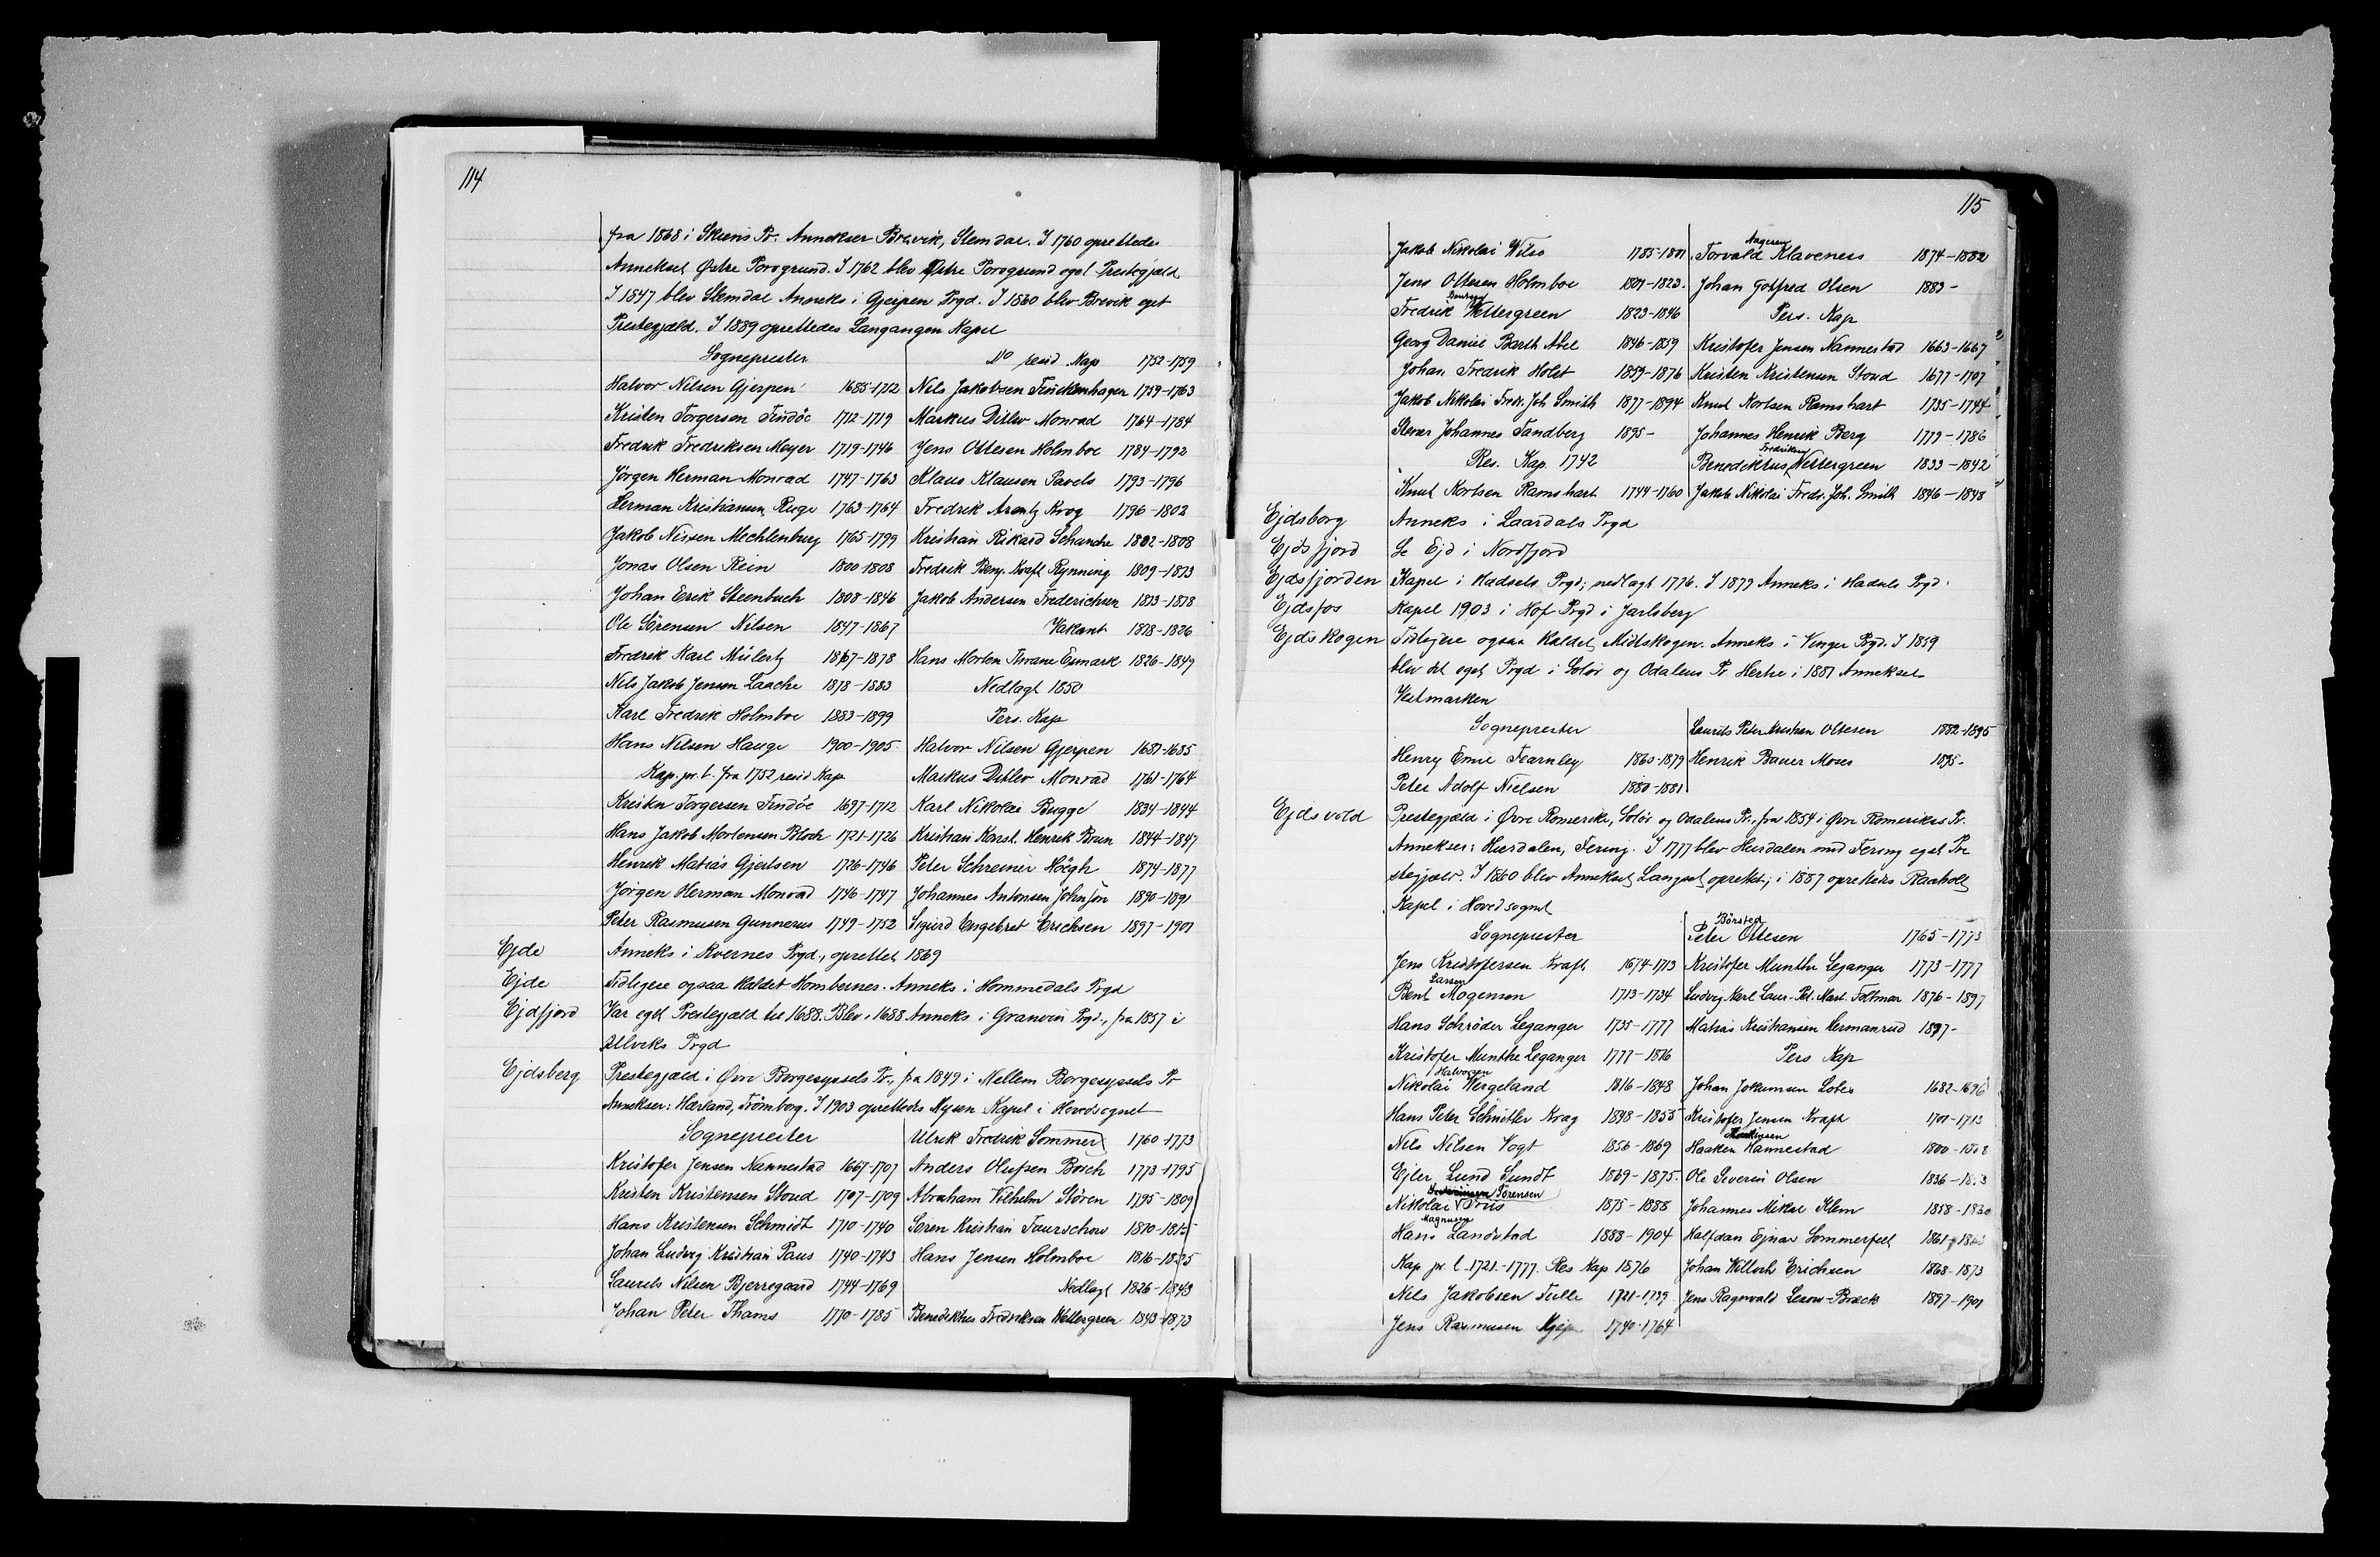 114
fra 1868 i Skiens Pr. Annekser Brevik, Slemdal. I 1760 oprettedes
Annekset Østre Porsgrund. I 1762 blev Østre Porsgrund eget Prestegjæld
I 1847 blev Slemdal Anneks i Gjerpen Prgd. I 1860 blev Brevik eget
Prestegjæld. I 1889 oprettedes Langangen Kapel
Sogneprester
Halvor Nilsen Gjerpen 1685-1712
Kristen Torgersen Tindöe 1712-1719
Fredrik Fredriksen Meyer 1719-1746
Jörgen Herman Monrad 1747-1763
Herman Kristiansen Ruge 1763-1764
Jakob Nissen Mechlenburg 1765-1799
Jonas Olsen Rein 1800-1808
Johan Erik Steenbuch 1808-1846
Ole Sörensen Nilsen 1847-1867
Fredrik Karl Mülertz 1867-1878
Nils Jakob Jensen Laache 1878-1883
Karl Fredrik Holmboe 1883-1899
Hans Nilsen Hauge 1900-1905
Kap. pr. l. fra 1752 resid Kap
Kristen Torgersen Tindöe 1697-1712
Hans Jakob Mortensen Bloch 1721-1726
Henrik Matias Gjertsen 1726-1746
Jörgen Herman Monrad 1746-1747
Peter Rasmusen Gunnerus 1749-1752
No resid Kap 1752-1759
Nils Jakobsen Finckenhagen 1759-1763
Markus Ditlev Monrad 1764-1784
Jens Ottesen Holmboe 1784-1792
Klaus Klausen Pavels 1793-1796
Fredrik Arentz Krog 1796-1802
Kristian Rikard Schanche 1802-1808
Fredrik Benj. Kraft Rynning 1809-1813
Jakob Andersen Frederichsen 1813-1818
Vakant 1818-1826
Hans Morten Thrane Esmark 1826-1849
Nedlagt 1850
Pers. Kap
Halvor Nilsen Gjerpen 1681-1685
Markus Ditlev Monrad 1761-1764
Karl Nikolai Bugge 1834-1844
Kristian Konst. Henrik Brun 1844-1847
Peter Schreiner Högh 1874-1877
Johannes Antonsen Johnson 1890-1891
Sigurd Engebret Erichsen 1897-1901
Ejde Anneks i Kvernes Prgd., oprettet 1869
Ejde Tidligere ogsaa kaldet Hombernes. Anneks i Hommedals Prgd
Ejdfjord Var eget Prestegjæld til 1688. Blev i 1688 Anneks i Granvin Prgd., fra 1857 i
Ulviks Prgd
Ejdsberg Prestegjæld i Øvre Borgesyssels Pr., fra 1849 i Mellem Borgesyssels Pr
Annekser: Hærland, Trömborg. I 1903 oprettedes Mysen Kapel i Hovedsognet
Sogneprester
Kristofer Jensen Nannestad 1667-1707
Kristen Kristensen Stoud 1707-1709
Hans Kristensen Schmidt 1710-1740
Johan Ludvig Kristian Paus 1740-1743
Laurits Nilsen Bjerregaard 1744-1769
Johan Peter Thams 1770-1785
Ulrik Fredrik Sommer 1760-1773
Anders Olufsen Bosch 1773-1795
Abraham Vilhelm Stören 1795-1809
Sören Kristian Taurschou 1810-1815
Hans Jensen Holmboe 1816-1825
Nedlagt 1826-1843
Benediktus Fredriksen Wettergreen 1843-1873
115
Jakob Nikolai Wilse 1785-1801
Jens Ottesen Holmboe 1801-1823
Fredrik Wettergreen 1823-1846
Georg Daniel Barth Abel 1846-1859
Johan Fredrik Holst 1859-1876
Jakob Nikolai Fredr. Joh. Smith 1877-1894
Stener Johannes Sandberg 1895-
Res. Kap. 1742
Knut Kortsen Ramshart 1744-1760
Aagesen
Torvald Klaveness 1874-1882
Johan Gotfred Olsen 1883-
Pers. Kap
Kristofer Jensen Nannestad 1663-1667
Kristen Kristensen Stoud 1677-1707
Knut Kortsen Ramshart 1735-1744
Johannes Henrik Berg 1779-1786
Fredriksen
Benediktus Wettergreen 1833-1842
Jakob Nikolai Fredr. Joh. Smith 1846-1848
Ejdsborg Anneks i Laardals Prgd
Ejdsfjord Se Ejd i Nordfjord
Ejdsfjorden Kapel i Hadsels Prgd; nedlagt 1776. I 1879 Anneks i Hadsels Prgd.
Ejdsfos Kapel 1903 i Hof Prgd i Jarlsberg
Ejdskogen Tidligere ogsaa kaldet Midtskogen. Anneks i Vinger Prgd. I 1859
blev det eget Prgd i Solör og Odalens Pr. Hertil i 1881 Annekset
Vestmarken
Sogneprester
Henry Emil Fearnley 1860-1879
Peter Adolf Nielsen 1880-1881
Laurits Peter Kristian Ottesen 1882-1895
Henrik Bauer Moses 1895-
Ejdsvold Prestegjæld i Øvre Romerike, Solör og Odalens Pr., fra 1854 i Øvre Romerikes Pr.
Annekser: Hurdalen, Fering. I 1777 blev Hurdalen med Fering eget Pre
stegjæld. I 1860 blev Annekset Langset oprettet; i 1887 oprettedes Raaholt
Kapel i Hovedsognet
Sogneprester
Jens Kristofersen Kraft 1674-1713
Larsen
Bent Mogensen 1713-1734
Hans Schröder Leganger 1735-1777
Kristofer Munthe Leganger 1777-1816
Halvorsen
Nikolai Wergeland 1816-1848
Hans Peter Schnitler Krag 1848-1855
Nils Nilsen Vogt 1856-1869
Ejler Lund Sundt 1869-1875
Sörensen
Nikolai Friis 1875-1888
Magnusen
Hans Landstad 1888-1904
Kap pr. l. 1721-1777. Res Kap 1876
Nils Jakobsen Tulle 1721-1739
Jens Rasmusen 1740-1764
Börsted
Peter Ottesen 1765-1773
Kristofer Munthe Leganger 1773-1777
Ludvig Karl Laur. Pet. Mart. Foltmar 1876-1897
Matias Kristiansen Hermanrud 1897-
Pers Kap
Johan Jokumsen Lobes 1682-1696
Kristofer Jensen Kraft 1701-1713
Haaken Hannestad 1800-
Ole Severin Olsen 1836-
Johannes Mikal Klem 1858-
Halfdan Ejnar Sommerfelt 1861-
Johan Willoch Erichsen 1868-1873
Jens Ragnvald Lexow-Bræck 1897-1901